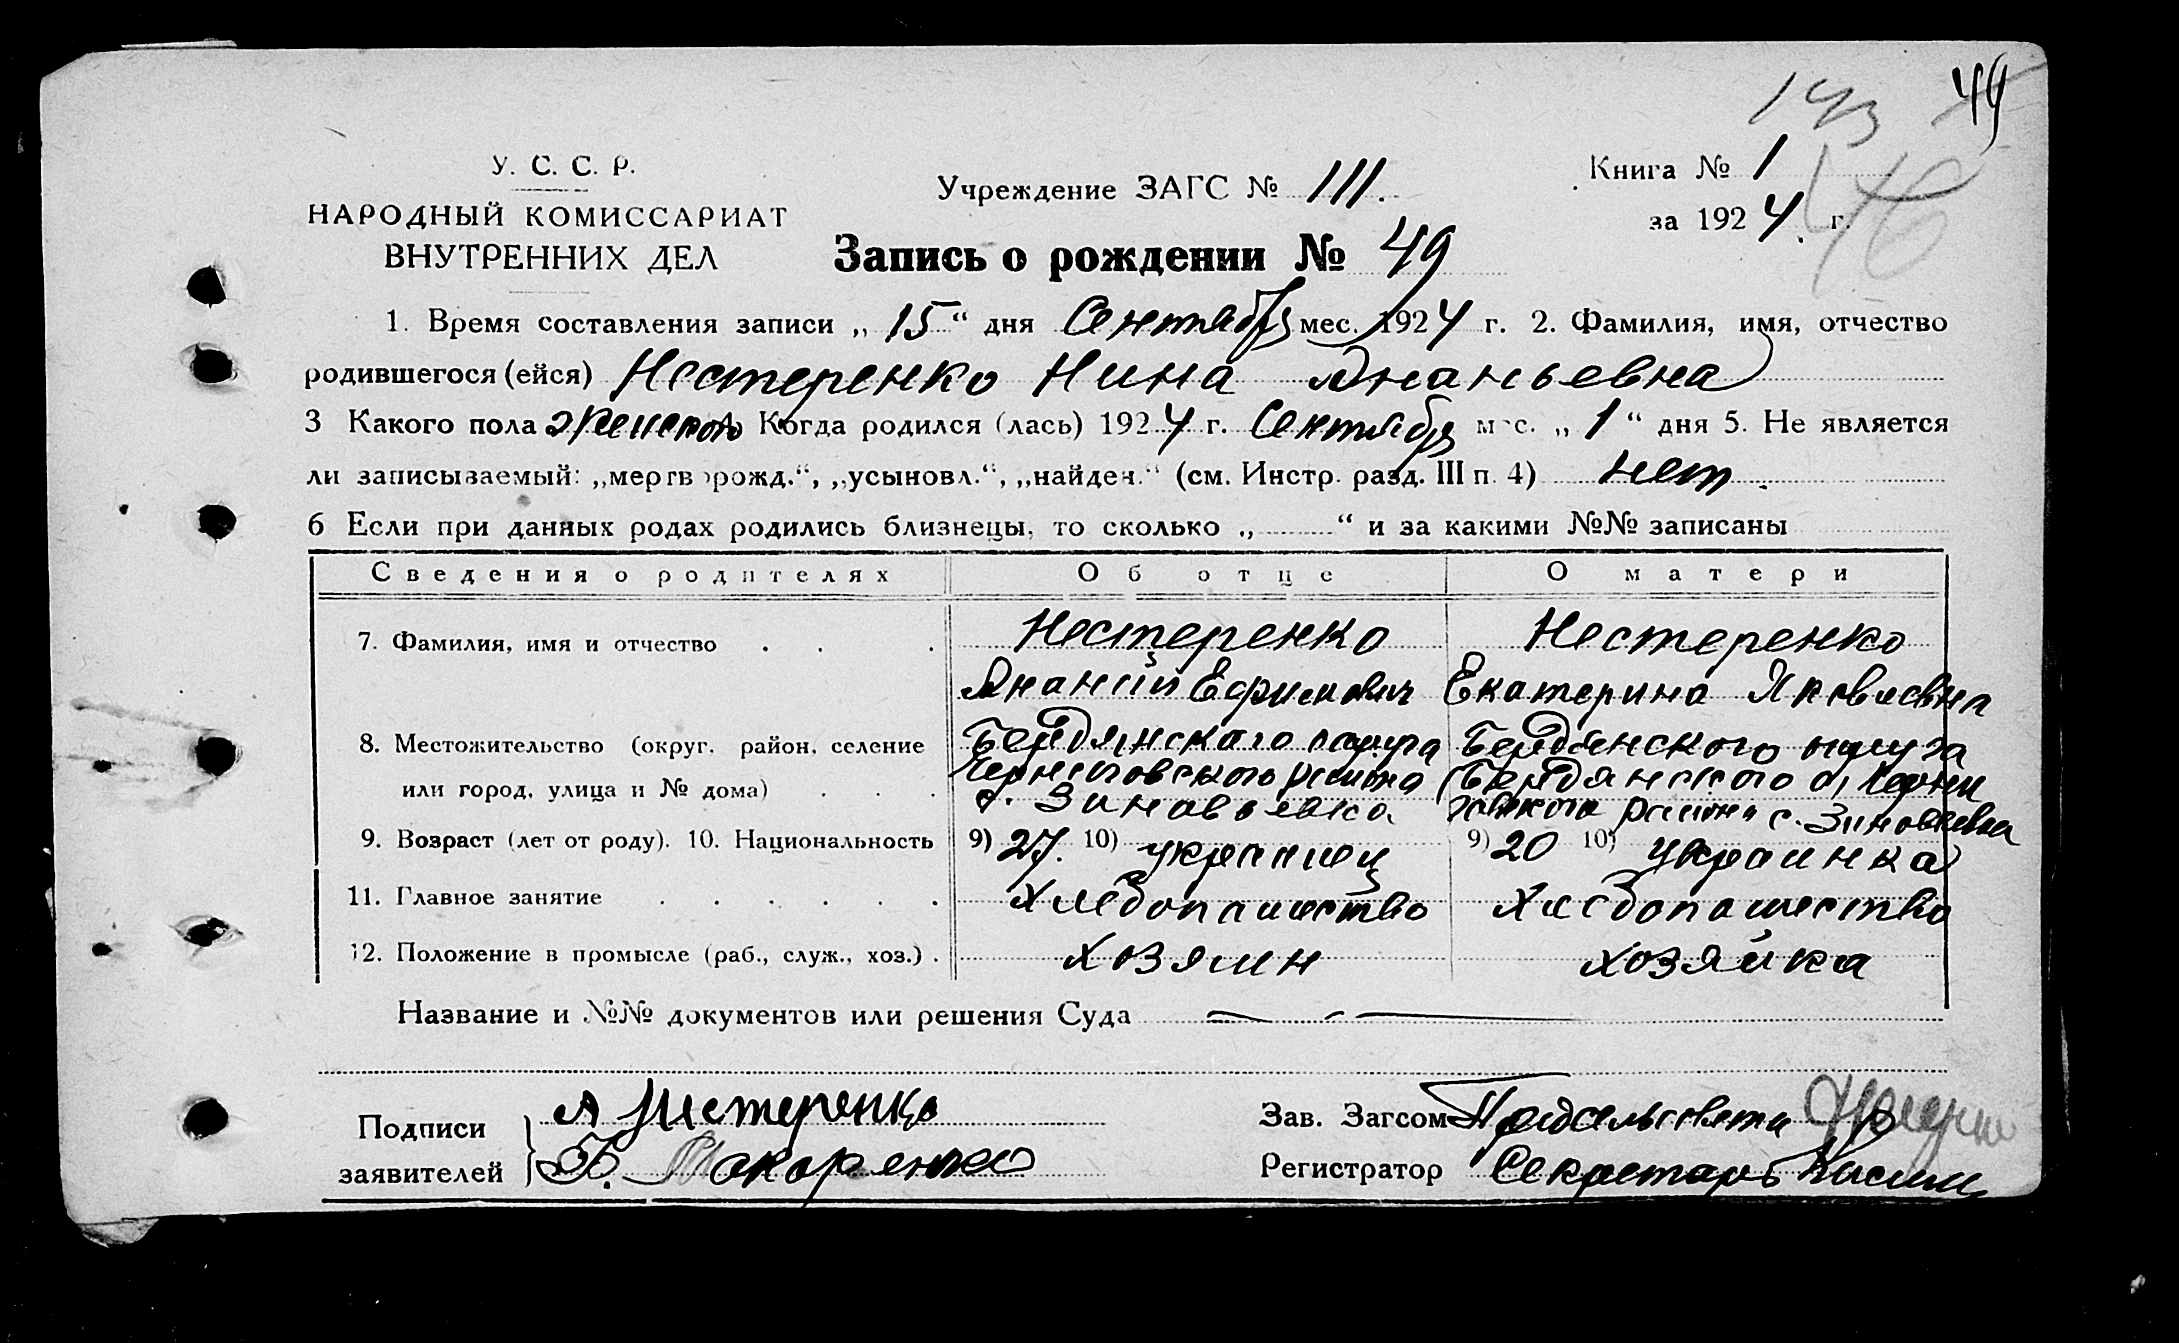 143 49
46
У. С. С. Р.
НАРОДНЫЙ КОМИССАРИАТ
ВНУТРЕННИХ ДЕЛ
Учреждение ЗАГС № 111.
Книга № 1
за 1924 г.
Запись о рождении № 49
1. Время составления записи „15“ дня Сентября мес. 1924 г. 2. Фамилия, имя, отчество
родившегося (ейся) Нестеренко Нина Ананьевна
3 Какого пола женского Когда родился (лась) 1924 г. Сентября мес. „1“ дня 5. Не является
ли записываемый: „мертворожд.“, „усыновл.“, „найден.“ (см. Инстр. разд. III п. 4) нет.
6 Если при данных родах родились близнецы, то сколько „......“ и за какими №№ записаны
Сведения о родителях Об отце О матери
7. Фамилия, имя и отчество Нестеренко Нестеренко
Ананий Ефимович Екатерина Яковлевна
8. Местожительство (округ, район, селение Бердянского округа Бердянского округа
Черниговского района Бердянского Черни
или город, улица и № дома) с. Зиновьевка говского района с. Зиновьевка
9. Возраст (лет от роду). 10. Национальность 9) 27. 10) украинец 9) 20 10) украинка
11. Главное занятие Хлебопашество Хлебопашество
12. Положение в промысле (раб., служ., хоз.) хозяин хозяйка
Название и №№ документов или решения Суда
Подписи
заявителей
А Нестеренко
Макаренко
Зав. Загсом Предсельсовета
Регистратор Секретарь